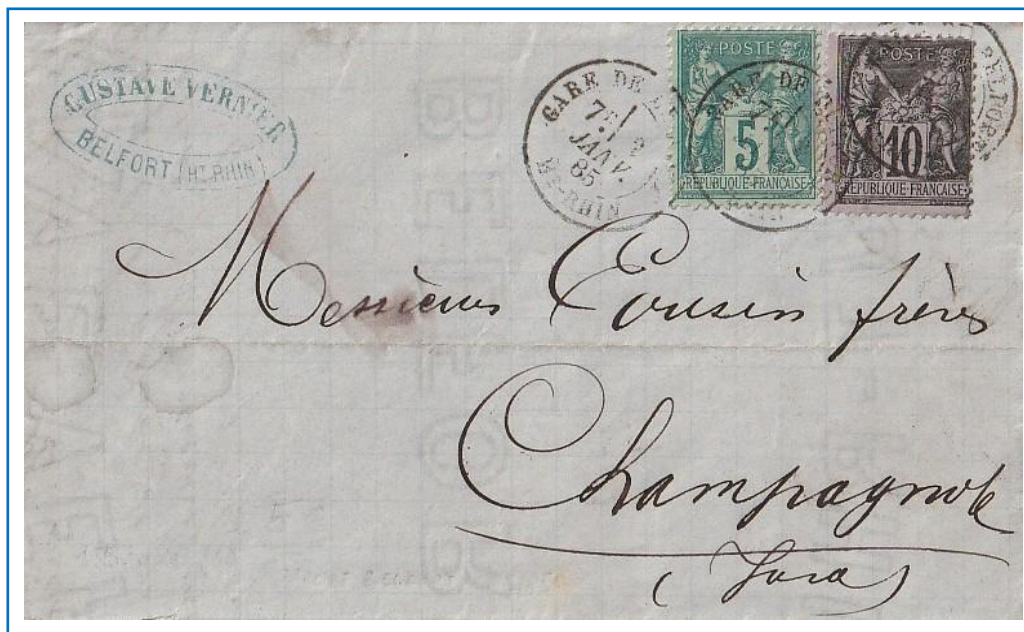 GUSTAVE VERNIER
BELFORT (HT RHIN)
GARE DE
7E/
2
JANV.
85
HT-RHIN
POSTE
5
RÉPUBLIQUE-FRANÇAISE
GARE DE
POSTE
10
RÉPUBLIQUE-FRANÇAISE
BELFORT
Messieurs Cousin frères
Champagnole
(Jura)